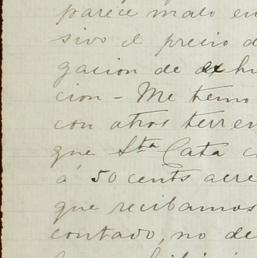 parece malo en
sivo el precio d
gacion de exhi
cion - Me temo
con otros terren
que Sta Cata c
á 50 cents acre
que recibamos
contado, no de